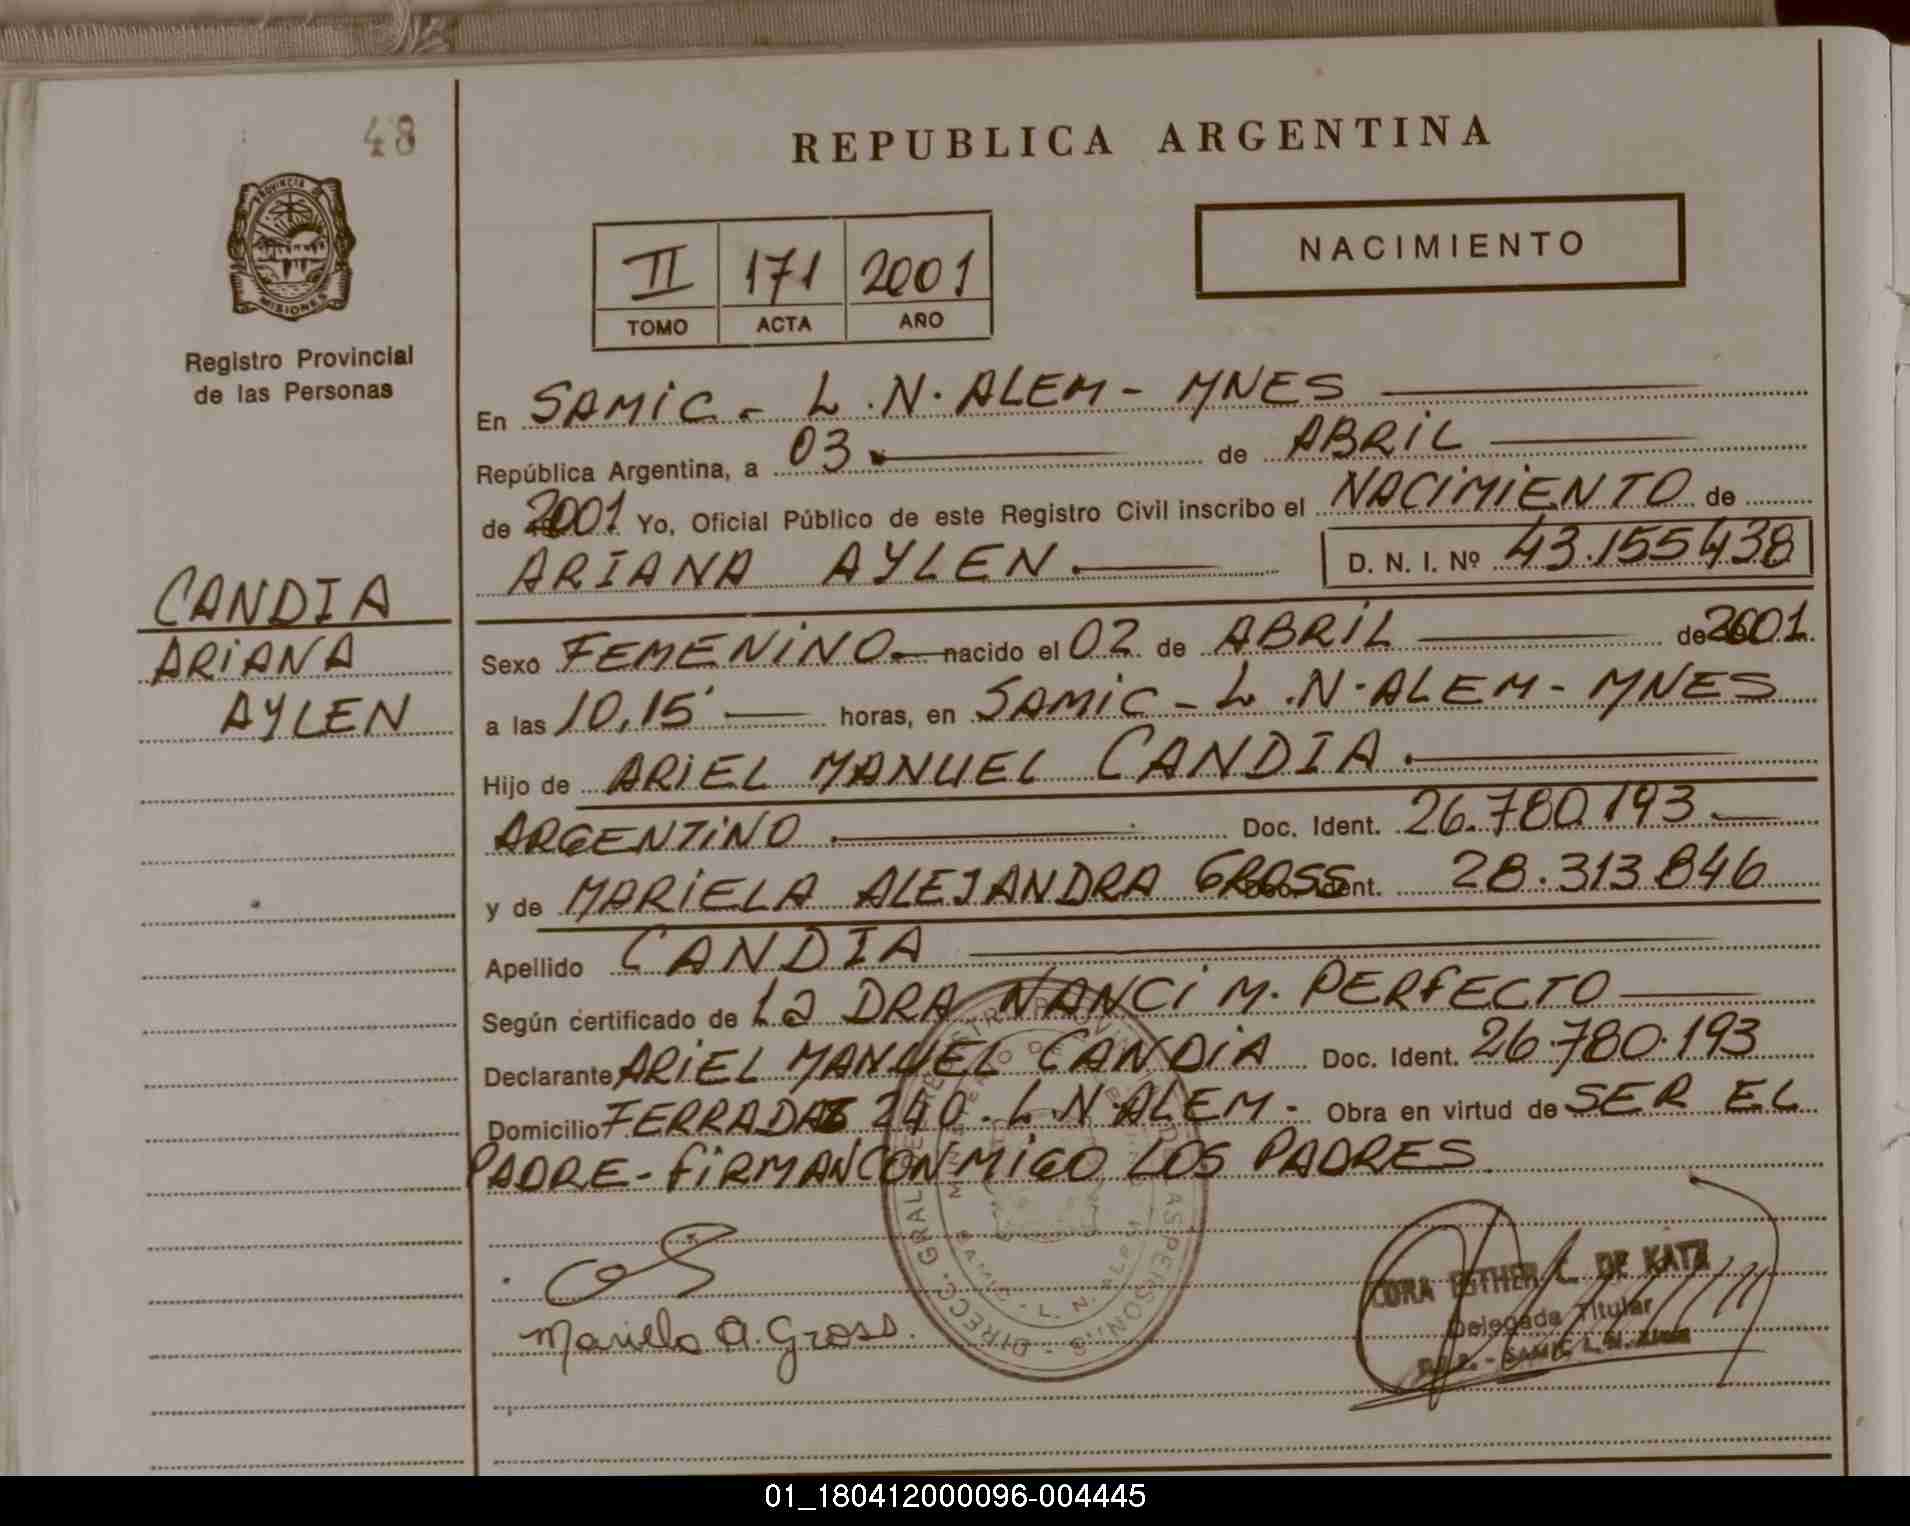 48
REPUBLICA ARGENTINA
PROVINCIA DE
MISIONES
Registro Provincial
de las Personas
II 171 2001
TOMO ACTA AÑO
NACIMIENTO
En SAMIC - L.N. ALEM - MNES
República Argentina, a 03 de ABRIL
de 2001 Yo, Oficial Público de este Registro Civil inscribo el NACIMIENTO de
ARIANA AYLEN D. N. I. Nº 43.155438
CANDIA
ARIANA
AYLEN
Sexo FEMENINO nacido el 02 de ABRIL de 2001
a las 10,15' horas, en SAMIC - L.N. ALEM - MNES
Hijo de ARIEL MANUEL CANDIA
ARGENTINO Doc. Ident. 26.780.193
y de MARIELA ALEJANDRA GROSS Doc. Ident. 28.313.846
Apellido CANDIA
Según certificado de La DRA NANCI M. PERFECTO
Declarante ARIEL MANUEL CANDIA Doc. Ident. 26.780.193
Domicilio 240 - L.N. ALEM - Obra en virtud de SER EL
PADRE - FIRMAN CONMIGO LOS PADRES
Mariela A. Gross.
ESTHER L. DE KATZ
Delegada Titular
SAMIC L. N. Alem
01_180412000096-004445